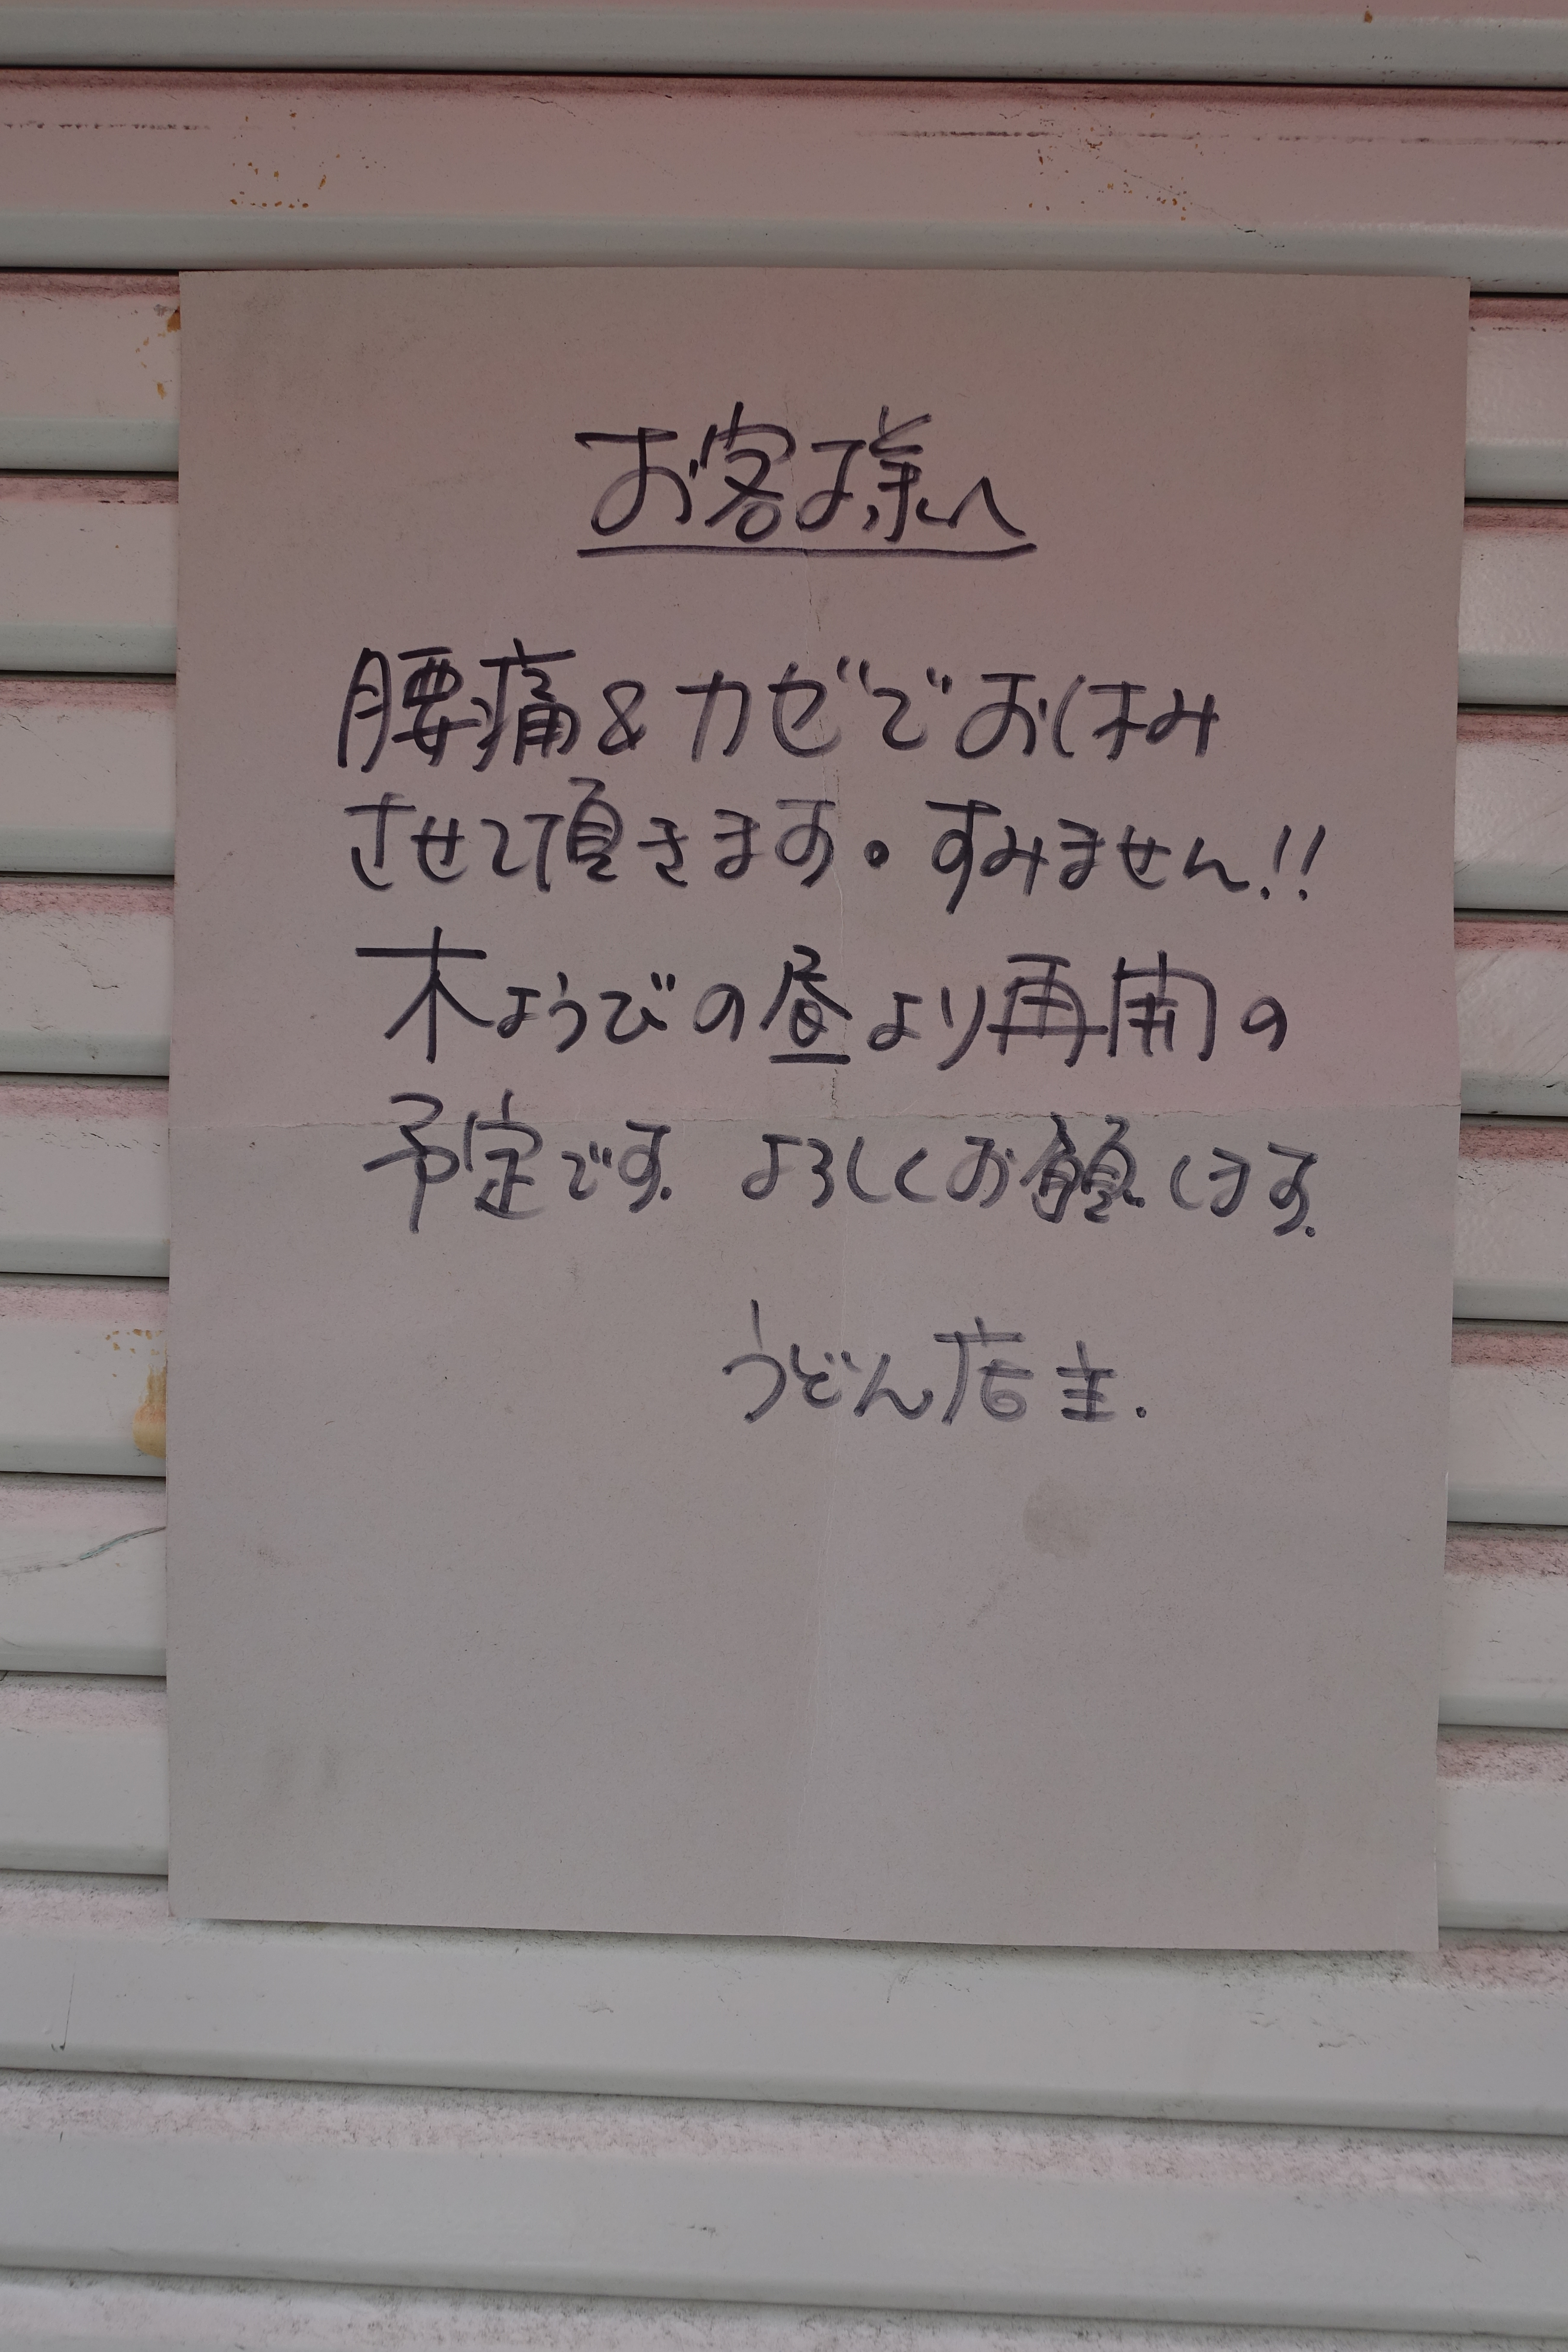 お客様へ
腰痛&カゼでお休み
させて頂きます。すみません!!
木ようびの昼より再開の
予定です. よろしくお願します.
うどん店主.